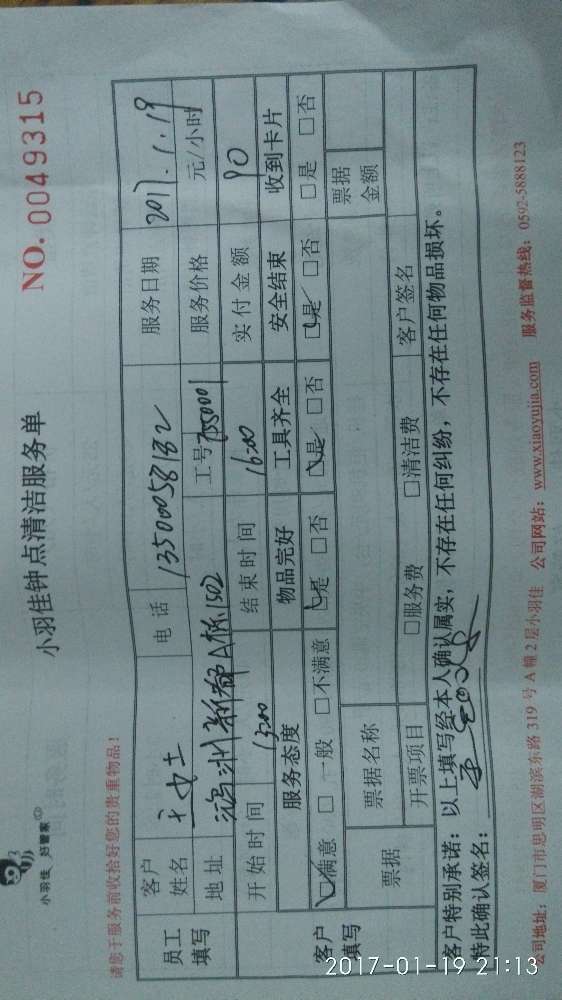 小羽佳 好管家
小羽佳钟点清洁服务单
NO. 0049315
请您于服务前收拾好您的贵重物品！
员工填写 客户姓名 女士 电话 13500058182 服务日期 2017.1.19
地址 A栋1502 工号 服务价格 元/小时
开始时间 13:00 结束时间 16:00 实付金额 90
客户填写 服务态度 物品完好 工具齐全 安全结束 收到卡片
□满意 □一般 □不满意 □是 □否 □是 □否 □是 □否 □是 □否
票据 票据名称 票据金额
开票项目 □服务费 □清洁费 客户签名
客户特别承诺：以上填写经本人确认属实，不存在任何纠纷，不存在任何物品损坏。
特此确认签名：
公司地址：厦门市思明区湖滨东路319号A幢2层小羽佳 公司网站：www.xiaoyujia.com 服务监督热线：0592-5888123
2017-01-19 21:13